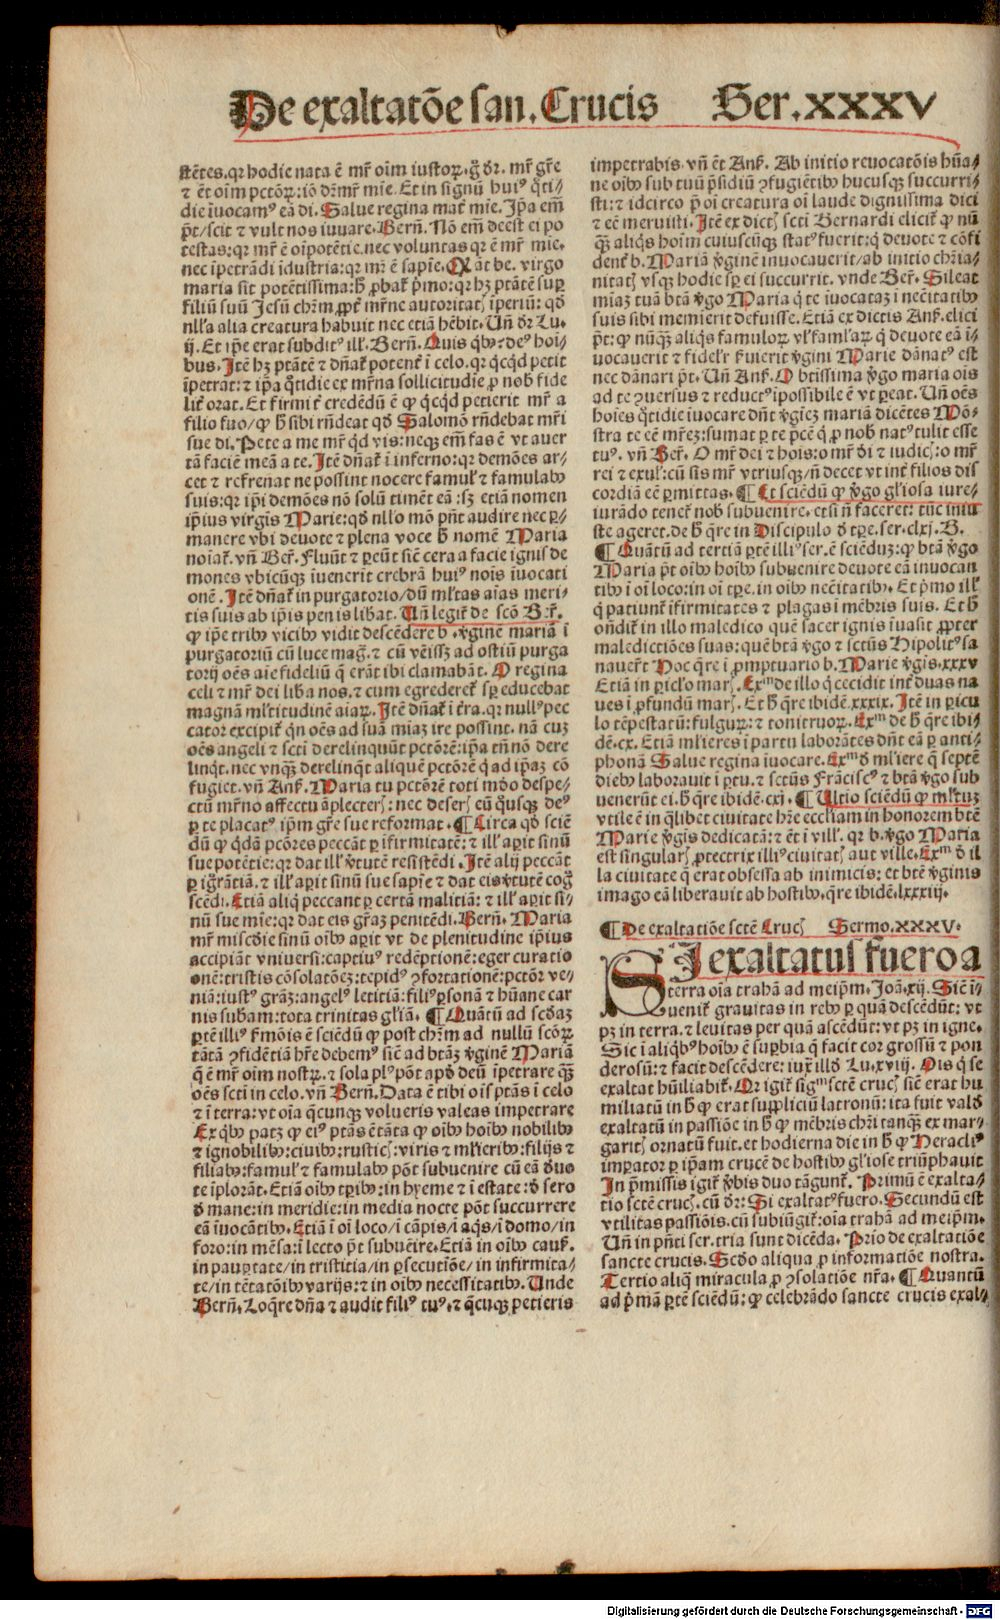 De exaltatōe san. Crucis Ser. XXXV
stētes. qr hodie nata ē mr̄ oīm iustoꝝ. g̊ dr̄. mr̄ gr̄e
⁊ ēt oīm pctōꝝ: iō dr̄ mr̄ mīe. Et in signū huiꝰ q̄ti/
die īuocamꝰ eā di. Salue regina mat̄ mīe. Ip̄a em̄
pt̄/scit ⁊ vult nos iuuare. Bern̄. Nō em̄ deest ei po
testas: qr mr̄ ē oīpotētie. nec voluntas qr ē mr̄ mīe.
nec īpetrādi īdustria: qr mr̄ ē sapīe. Q aūt be. virgo
maria sit potētissima: h̄ ꝓbat̄ pͥmo: qr hꝫ ptātē suꝑ
filiū suū Jesū chr̄m ꝓpt̄ mr̄ne autoritatꝭ īperiū: qd̓
nll'a alia creatura habuit nec etiā hēbit. Un̄ dr̄ Lu.
ij. Et ip̄e erat subditꝰ ill'. Bern̄. Quis qͥbꝰ: deꝰ hoī/
bus. Itē hꝫ ptātē ⁊ dn̄at̄ potent̄ ī celo. qr qͥcqͥd petit
īpetrat: ⁊ ip̄a q̄tidie ex mr̄na sollicitudīe ꝓ nob̄ fide
lit̄ orat. Et firmit̄ credēdū ē ꝙ qͥcqͥd petierit mr̄ a
filio suo/ꝙ h̄ sibi rn̄deat qd̓ Salomō rn̄debat mr̄i
sue di. Pete a me mr̄ qͥd vis: neqꝫ em̄ fas ē vt auer
tā faciē meā a te. Itē dn̄at̄ ī inferno: qr demōes ar/
cet ⁊ refrenat ne possint nocere famul' ⁊ famulabꝰ
suis: qr ip̄i demōes nō solū timēt eā: sꝫ etiā nomen
ip̄ius virgīs Marie: qd̓ nllo mō pn̄t audire nec ꝑ/
manere vbi deuote ⁊ plena voce h̄ nomē Maria
noīat̄. vn̄ Ber̄. Fluūt ⁊ ꝑeūt sic̄ cera a facie ignis de
mones vbicūqꝫ īuenerit crebrā huiꝰ noīs īuocati
onē. Itē dn̄at̄ in purgatorio/dū ml'tas aīas meri/
tis suis ab ip̄is penis lib̄at. Un̄ legit̄ de scō B̄r̄.
ꝙ ip̄e tribꝰ vicibꝰ vidit descēdere b. v̄ginē mariā ī
purgatoriū cū luce mag̊. ⁊ cū vēissꝫ ad ostiū purga
torij oēs aīe fideliū q̄ erāt ibi clamabāt. O regina
celi ⁊ mr̄ dei lib̄a nos. ⁊ cum egrederet̄ sꝑ educebat
magnā ml'titudinē aīaꝝ. Itē dn̄at̄ ī t̄ra. qr nullꝰ pec
cator excipit̄ qn̄ oēs ad suā mīaꝫ ire possint. nā cuꝫ
oēs angeli ⁊ scti derelinquūt pctōrē: ip̄a tn̄ nō dere
linqͥt. nec vnqꝫ̄ derelinqͥt aliquē pctōrē qͥ ad ip̄aꝫ cō
fugiet. vn̄ Ans̄. Maria tu pctōrē toti mūdo despe/
ctū mr̄no affectu āplecterꝭ: nec deserꝭ eū qͦusqꝫ deꝰ
ꝑ te placatꝰ ip̄m gr̄e sue reformat. ¶ Circa qd̓ sciē
dū ꝙ qͥdā pctōres peccāt ꝑ īfirmitatē: ⁊ ill' aꝑit sinū
sue potētie: qr dat ill' v̄tutē resistēdi. Itē alij peccāt
ꝑ ig̊rātiā. ⁊ ill' aꝑit sinū sue sapīe ⁊ dat eis v̄tutē cog̊
scēdi. Etiā aliqͥ peccant ꝑ certā malitiā: ⁊ ill' aꝑit si/
nū sue mīe: qr dat eis gr̄aꝫ penitēdi. Bern̄. Maria
mr̄ miscd̓ie sinū oībꝰ aꝑit vt de plenitudine ip̄ius
accipiāt vniuersi: captiuꝰ redēptionē: eger curatio
onē: tristis cōsolatōeꝫ: tepidꝰ ꝯfortationē: pctōr ve/
niā: iustꝰ grāꝫ: angelꝰ letitiā: filiꝰ ꝑsonā ⁊ hūane car
nis subam: tota trinitas gl'iā. ¶ Quātū ad scd̓aꝫ
ꝑtē illiꝰ s̓mōis ē sciēdū ꝙ post chr̄m ad nullū scōꝝ
tātā ꝯfidētiā hr̄e debemꝰ sic̄ ad btāꝫ v̄ginē Mariā
q̄ ē mr̄ oīm nostꝝ. ⁊ sola plꝰ pōt apd̓ deū īpetrare qꝫ̄
oēs scti in celo. vn̄ Bern̄. Data ē tibi oīs ptās ī celo
⁊ ī terra: vt oīa q̄cunqꝫ volueris valeas impetrare
Ex qͥbꝰ patꝫ ꝙ eiꝰ ptās ē tāta ꝙ oībꝰ hoībꝰ nobilibꝰ
⁊ ignobilibꝰ: ciuibꝰ: rusticꝭ: viris ⁊ ml'ieribꝰ: filijs ⁊
filiabꝰ: famul' ⁊ famulabꝰ pōt subuenire cū eā d̓uo
te īplorāt. Etiā oībꝰ tꝑibꝰ: in hyeme ⁊ ī estate: d̓ sero
d̓ mane: in meridie: in media nocte pōt succurrere
eā īuocātibꝰ. Etiā ī oī loco/ī cāpis/ī aqͥs/ī domo/in
foro: in mēsa: ī lecto pt̄ subuēire. Etiā in oībꝰ caus̄.
in pauꝑtate/in tristicia/in ꝑsecutiōe/in infirmita/
te/in tētatōibꝰ varijs: ⁊ in oībꝰ necessitatibꝰ. Unde
Bern̄. Loq̄re dn̄a ⁊ audit filiꝰ tuꝰ. ⁊ q̄cūqꝫ petieris
impetrabis. vn̄ ēt Ans̄. Ab initio reuocatōis hūa/
ne oībꝰ sub tuū p̄sidiū ꝯfugiētibꝰ hucusqꝫ succurri/
sti: ⁊ idcirco p̄ oī creatura oī laude dignissima dici
⁊ eē meruisti. Itē ex dictꝭ scti Bernardi elicit̄ ꝙ nū
qꝫ̄ aliqͥs hoīm cuiuscūqꝫ statꝰ fuerit: qͥ deuote ⁊ cōfi
dent̄ b. Mariā v̄ginē inuocauerit/ab initio chr̄ia/
nitatꝭ vsqꝫ hodie sꝑ ei succurrit. vnde Ber̄. Sileat
mīaꝫ tuā btā v̄go Maria qͥ te īuocataꝫ ī nec̄itatibꝰ
suis sibi memierit defuisse. Etiā ex dictis Ans̄. elici
pt̄: ꝙ nūqꝫ̄ aliqͥs famuloꝝ vl' faml'aꝝ qͥ deuote eā ī/
uocauerit ⁊ fidel'r s̓uierit v̄gini Marie dānatꝰ est
nec dānari pt̄. Un̄ Ans̄. O btissima v̄go maria oīs
ad te ꝯuersus ⁊ reductꝰ īpossibile ē vt ꝑeat. Un̄ oēs
hoīes q̄tidie īuocare dn̄t v̄gīeꝫ mariā dicētes Mō/
stra te eē mr̄eꝫ: sumat ꝑ te pcē qͥ ꝓ nob̄ natꝰ tulit esse
tuꝰ. vn̄ Ber̄. O mr̄ dei ⁊ hoīs: o mr̄ d̓i ⁊ iudicꝭ: o mr̄
rei ⁊ exul': cū sis mr̄ vtriusqꝫ/n̄ decet vt int̄ filios dis
cordiā eē ꝑmittas. ¶ Et sciēdū ꝙ v̄go gl'iosa iure/
iurādo tenet̄ nob̄ subuenire. etsi n̄ faceret: tūc iniu
ste ageret. de h̄ q̄re in Discipulo d̓ tꝑe. ser. clxj. B.
¶ Quātū ad tertiā ꝑtē illiꝰ ser. ē sciēduꝫ: ꝙ btā v̄go
Maria pt̄ oībꝰ hoībꝰ subuenire deuote eā inuocan
tibꝰ ī oī loco: in oī tꝑe. in oībꝰ nec̄itatibꝰ. Et pͥmo ill'
qͥ patiunt̄ ifirmitates ⁊ plagas ī mēbris suis. Et h̄
ondit̄ in illo maledico quē sacer ignis īuasit ꝓpter
maledictiōes suas: quē btā v̄go ⁊ sctūs Hipolitꝰ sa
nauer̄t Hoc q̄re ī ꝓmptuario b. Marie v̄gīs. xxxv
Etiā in ꝑicl'o marꝭ. Exᵐ de illo qͥ cecidit int̄ duas na
ues ī ꝓfundū marꝭ. Et h̄ q̄re ibidē. xxxix. Itē in ꝑicu
lo tēpestatū: fulguꝝ: ⁊ tonitruoꝝ. Exᵐ de h̄ q̄re ibi/
dē. cx. Etiā ml'ieres ī partu laborātes dn̄t eā ꝑ anti/
phonā Salue regina īuocare. Exᵐ d̓ ml'iere q̄ septē
diebꝰ laborauit ī ꝑtu. ⁊ sctūs Frāciscꝰ ⁊ btā v̄go sub
uenerūt ei. h̄ q̄re ibidē. cxj. ¶ Ultīo sciēdū ꝙ ml'tuꝫ
vtile ē in qͣlibet ciuitate hr̄e eccl'iam in honorem btē
Marie v̄gīs dedicatā: ⁊ ēt ī vill'. qr b. v̄go Maria
est singularꝭ ꝓtectrix illiꝰ ciuitatꝭ aut ville. Exᵐ d̓ il
la ciuitate q̄ erat obsessa ab inimicis: et btē v̄ginis
imago eā liberauit ab hostibꝰ. q̄re ibidē. lxxxiij.
¶ De exaltatiōe sctē Crucꝭ Sermo. XXXV.
SI exaltatus fuero a
terra oīa trahā ad meip̄m. Joā. xij. Sic̄ ī/
uenit̄ grauitas in rebꝰ ꝑ quā descēdūt: vt
pꝫ in terra. ⁊ leuitas per quā ascēdūt: vt pꝫ in igne.
Sic ī aliqͥbꝰ hoībꝰ ē suꝑbia q̄ facit cor grossū ⁊ pon
derosū: ⁊ facit descēdere: iux̄ illd̓ Lu. xviij. Oīs qͥ se
exaltat hūiliabit̄. Qr igit̄ sigᵐ sctē crucꝭ sic̄ erat hu
miliatū in h̄ ꝙ erat suppliciū latronū: ita fuit vald̓
exaltatū in passiōe in h̄ ꝙ mēbris chr̄i tanqꝫ̄ ex mar/
garitꝭ ornatū fuit. et hodierna die in h̄ ꝙ Heracliꝰ
imꝑator ꝑ ip̄am crucē de hostibꝰ gl'iose triūphauit
In p̄missis igit̄ v̄bis duo tāgunt̄. Primū ē exalta/
tio sctē crucꝭ. cū dr̄: Si exaltatꝰ fuero. Secundū est
vtilitas passiōis. cū subiūgit̄: oīa trahā ad meip̄m.
Un̄ in pn̄ti ser. tria sunt dicēda. Prīo de exaltatiōe
sancte crucis. Scd̓o aliqua ꝓ informatiōe nostra.
Tertio aliqͣ miracula ꝓ ꝯsolatiōe nr̄a. ¶ Quantū
ad pͥmā ꝑtē sciēdū: ꝙ celebrādo sancte crucis exal/
Digitalisierung gefördert durch die Deutsche Forschungsgemeinschaft - DFG